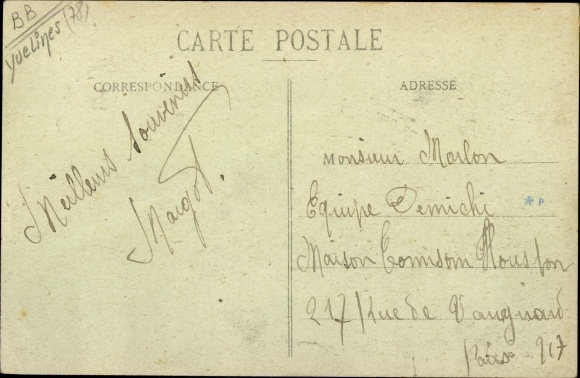 BB
Yvelines (78)
CARTE POSTALE
CORRESPONDANCE
Meilleurs Souvenirs
Margot.
ADRESSE
Monsieur Marlon
Equipe Demichi
Maison
217 Rue de Vaugirard
Paris